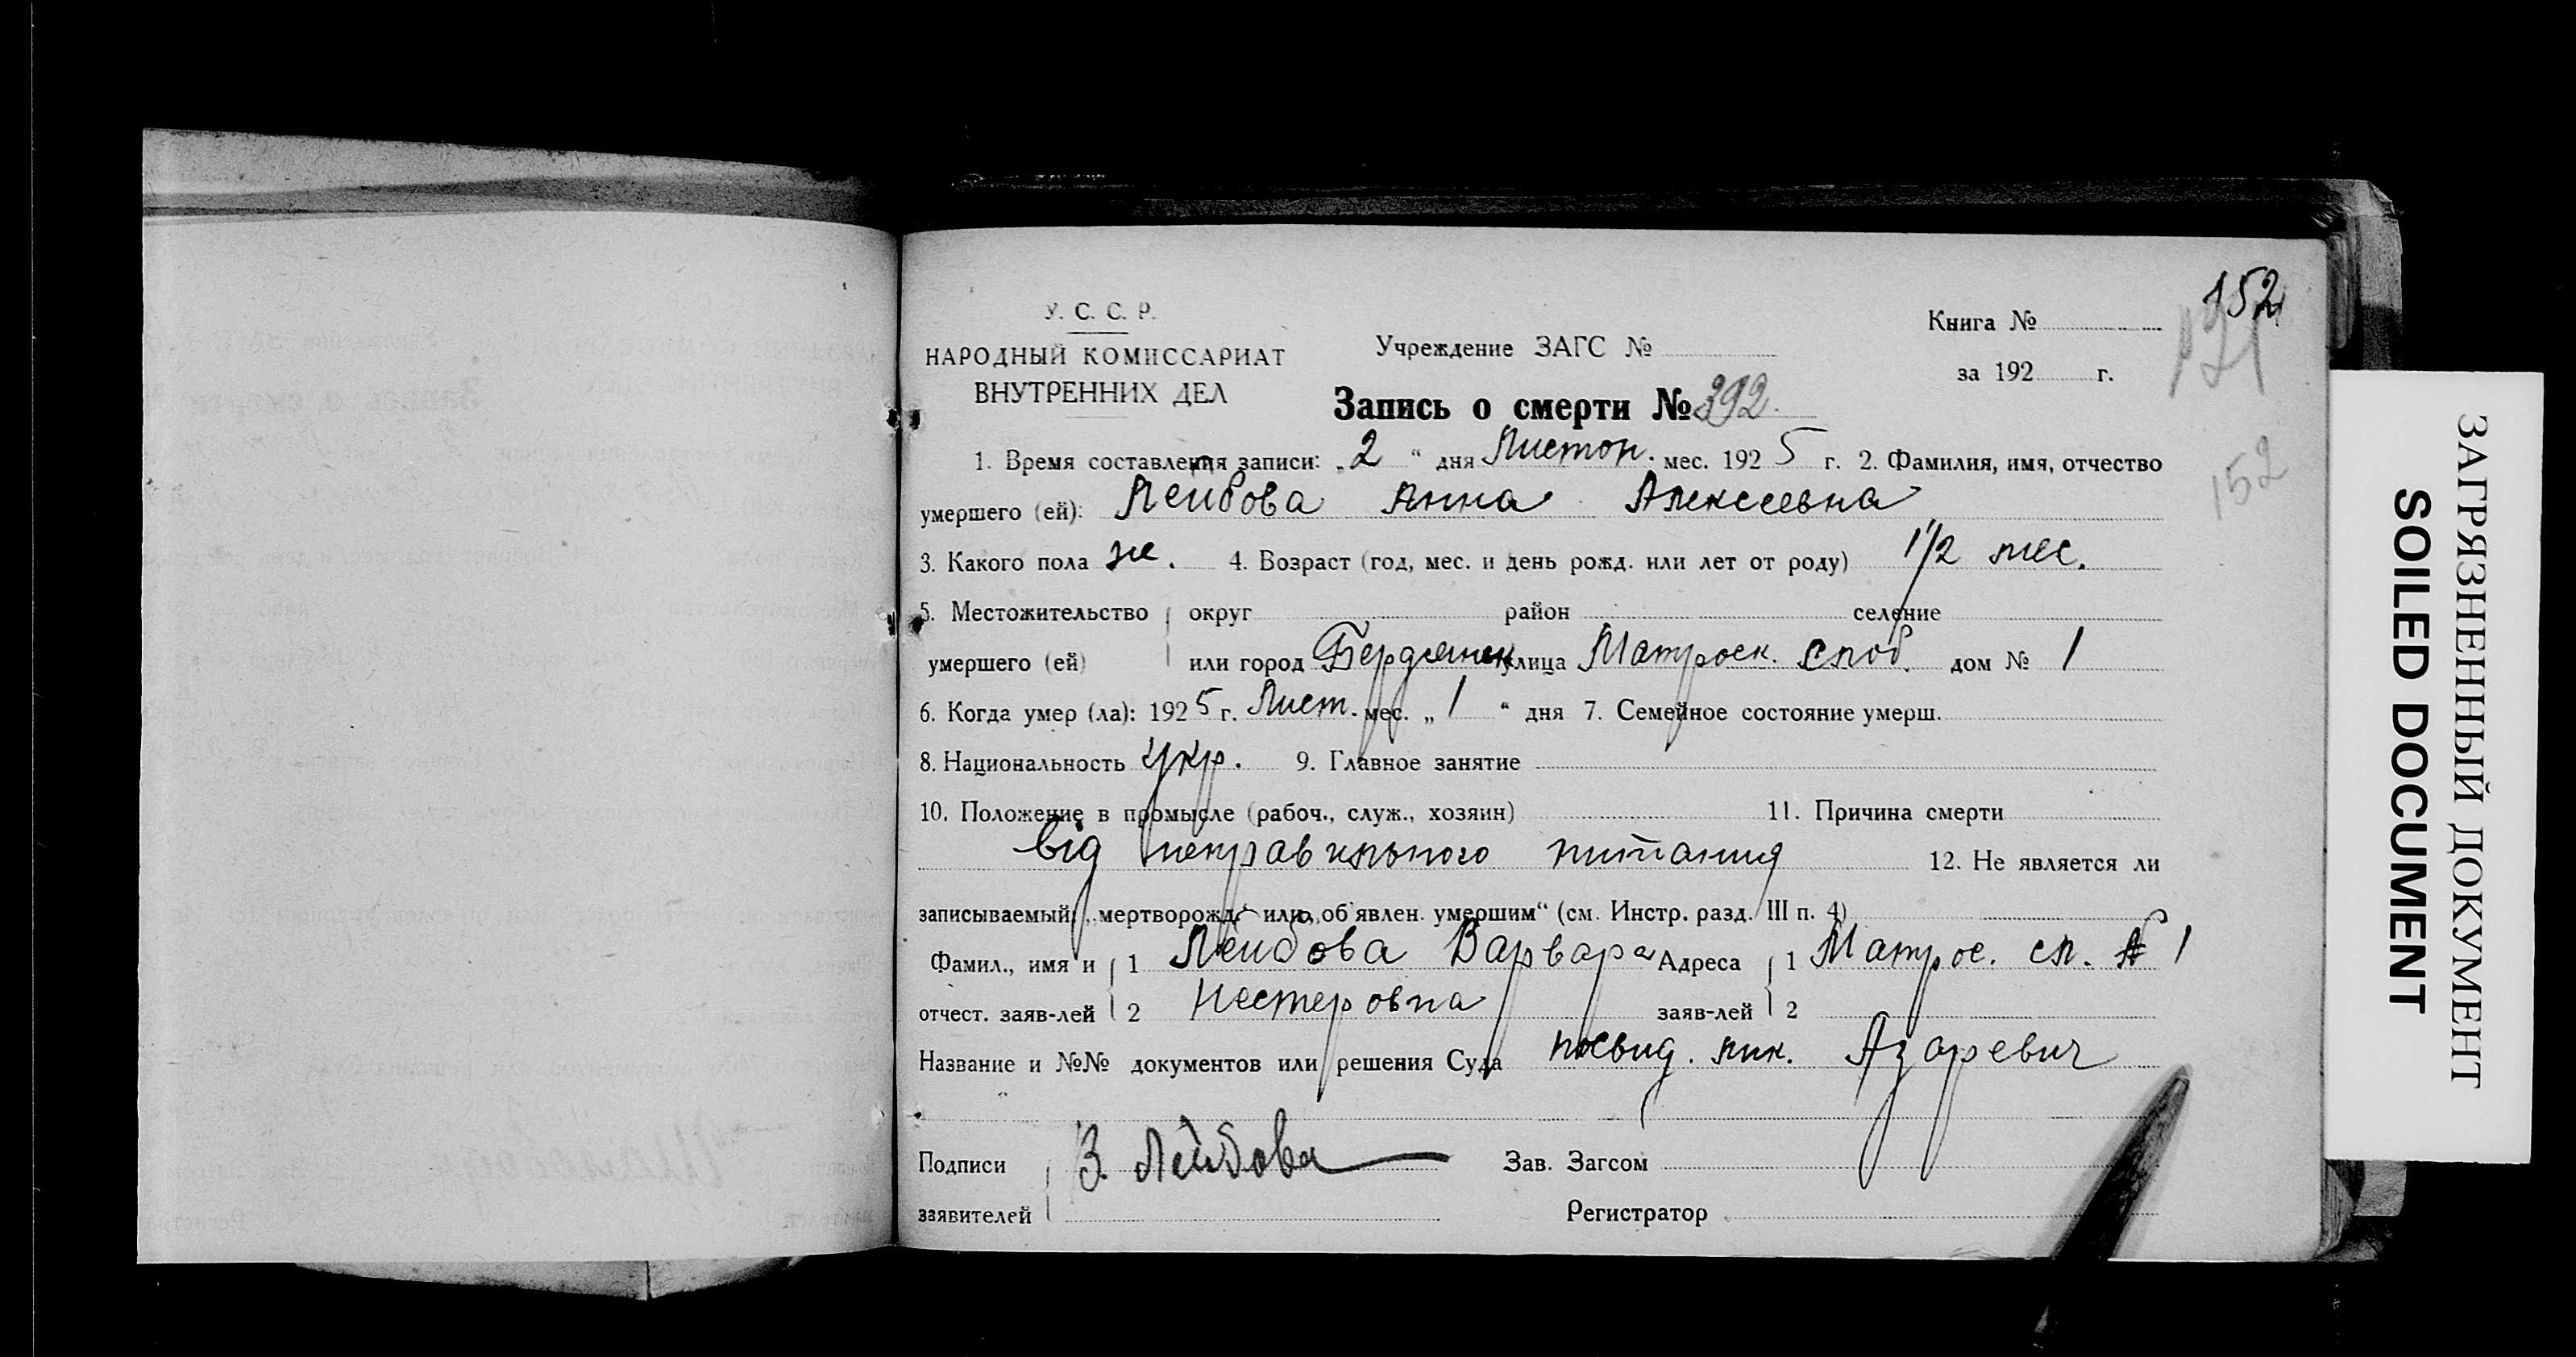 152
121
152
У. С. С. Р.
НАРОДНЫЙ КОМИССАРИАТ
ВНУТРЕННИХ ДЕЛ
Учреждение ЗАГС №
Книга №
за 192 г.
Запись о смерти № 392.
1. Время составления записи: „2“ дня Листоп. мес. 1925 г. 2. Фамилия, имя, отчество
умершего (ей): Лейбова Анна Алексеевна
3. Какого пола же. 4. Возраст (год, мес. и день рожд. или лет от роду) 1 1/2 мес.
5. Местожительство округ район селение
умершего (ей) или город Бердянск улица Матроск. слоб. дом № 1
6. Когда умер (ла): 1925 г. Лист. мес. „1“ дня 7. Семейное состояние умерш.
8. Национальность укр. 9. Главное занятие
10. Положение в промысле (рабоч., служ., хозяин) 11. Причина смерти
від неправильного питания 12. Не является ли
записываемый „мертворожд“ или „об'явлен. умершим“ (см. Инстр. разд. III п. 4)
Фамил., имя и 1 Лейбова Варвара Адреса 1 Матрос. сл. № 1
отчест. заяв-лей 2 Нестеровна заяв-лей 2
Название и №№ документов или решения Суда посвид. лік. Азаревич
Подписи В. Лейбова Зав. Загсом
заявителей Регистратор
ЗАГРЯЗНЕННЫЙ ДОКУМЕНТ
SOILED DOCUMENT